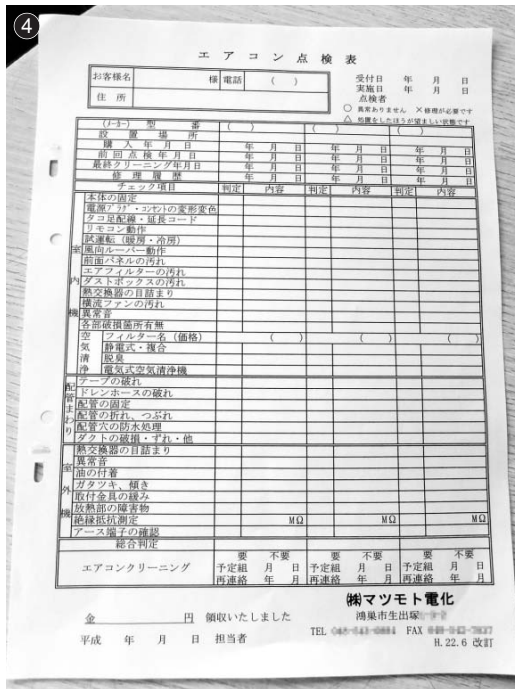 ④
エアコン点検表
お客様名 様 電話 ( )
住所
受付日 年 月 日
実施日 年 月 日
点検者
○ 異常ありません ×修理が必要です
△ 処置をしたほうが望ましい状態です
(メーカー) 型番 ( ) ( ) ( )
設置場所
購入年月日 年 月 日 年 月 日 年 月 日
前回点検年月日 年 月 日 年 月 日 年 月 日
最終クリーニング年月日 年 月 日 年 月 日 年 月 日
修理履歴 年 月 日 年 月 日 年 月 日
チェック項目 判定 内容 判定 内容 判定 内容
室内機
本体の固定
電源プラグ・コンセントの変形変色
タコ足配線・延長コード
リモコン動作
試運転(暖房・冷房)
風向ルーバー動作
前面パネルの汚れ
エアフィルターの汚れ
ダストボックスの汚れ
熱交換器の目詰まり
横流ファンの汚れ
異常音
各部破損箇所有無
空気清浄
フィルター名(価格) ( ) ( ) ( )
静電式・複合
脱臭
電気式空気清浄機
配管まわり
テープの破れ
ドレンホースの破れ
配管の固定
配管の折れ、つぶれ
配管穴の防水処理
ダクトの破損・ずれ・他
室外機
熱交換器の目詰まり
異常音
油の付着
ガタツキ、傾き
取付金具の緩み
放熱部の障害物
絶縁抵抗測定 MΩ MΩ MΩ
アース端子の確認
総合判定
エアコンクリーニング
要 不要 要 不要 要 不要
予定組 月 日 予定組 月 日 予定組 月 日
再連絡 年 月 再連絡 年 月 再連絡 年 月
㈱マツモト電化
金 円 領収いたしました
鴻巣市生出塚
TEL FAX
平成 年 月 日 担当者
H.22.6 改訂